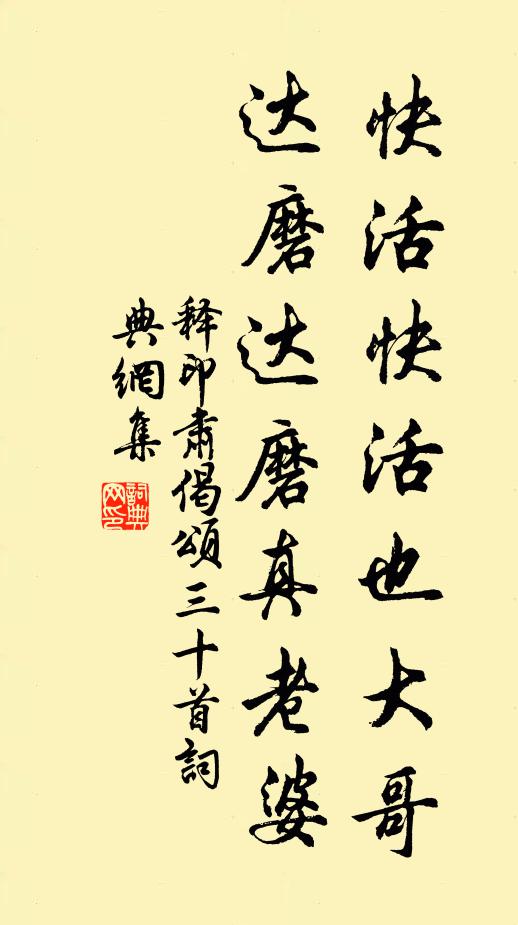 快活快活也大哥
达磨达磨真老婆
释印肃偈颂三十首詞
典網集
詞典
网印